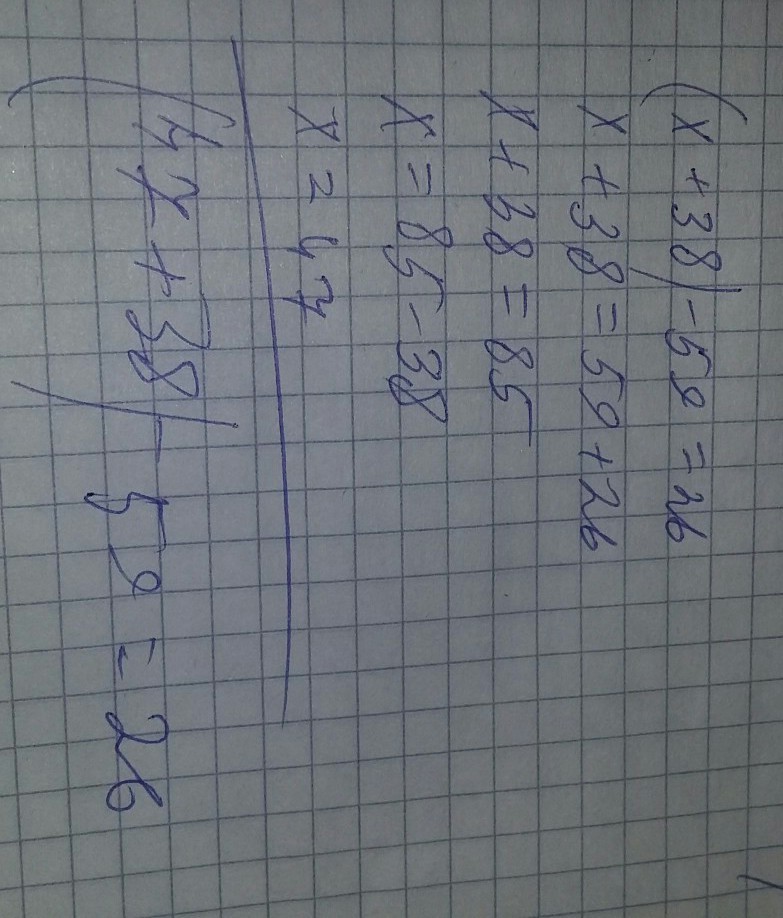 (x + 38) - 59 = 26
x + 38 = 59 + 26
x + 38 = 85
x = 85 - 38
x = 47
(47 + 38) - 59 = 26